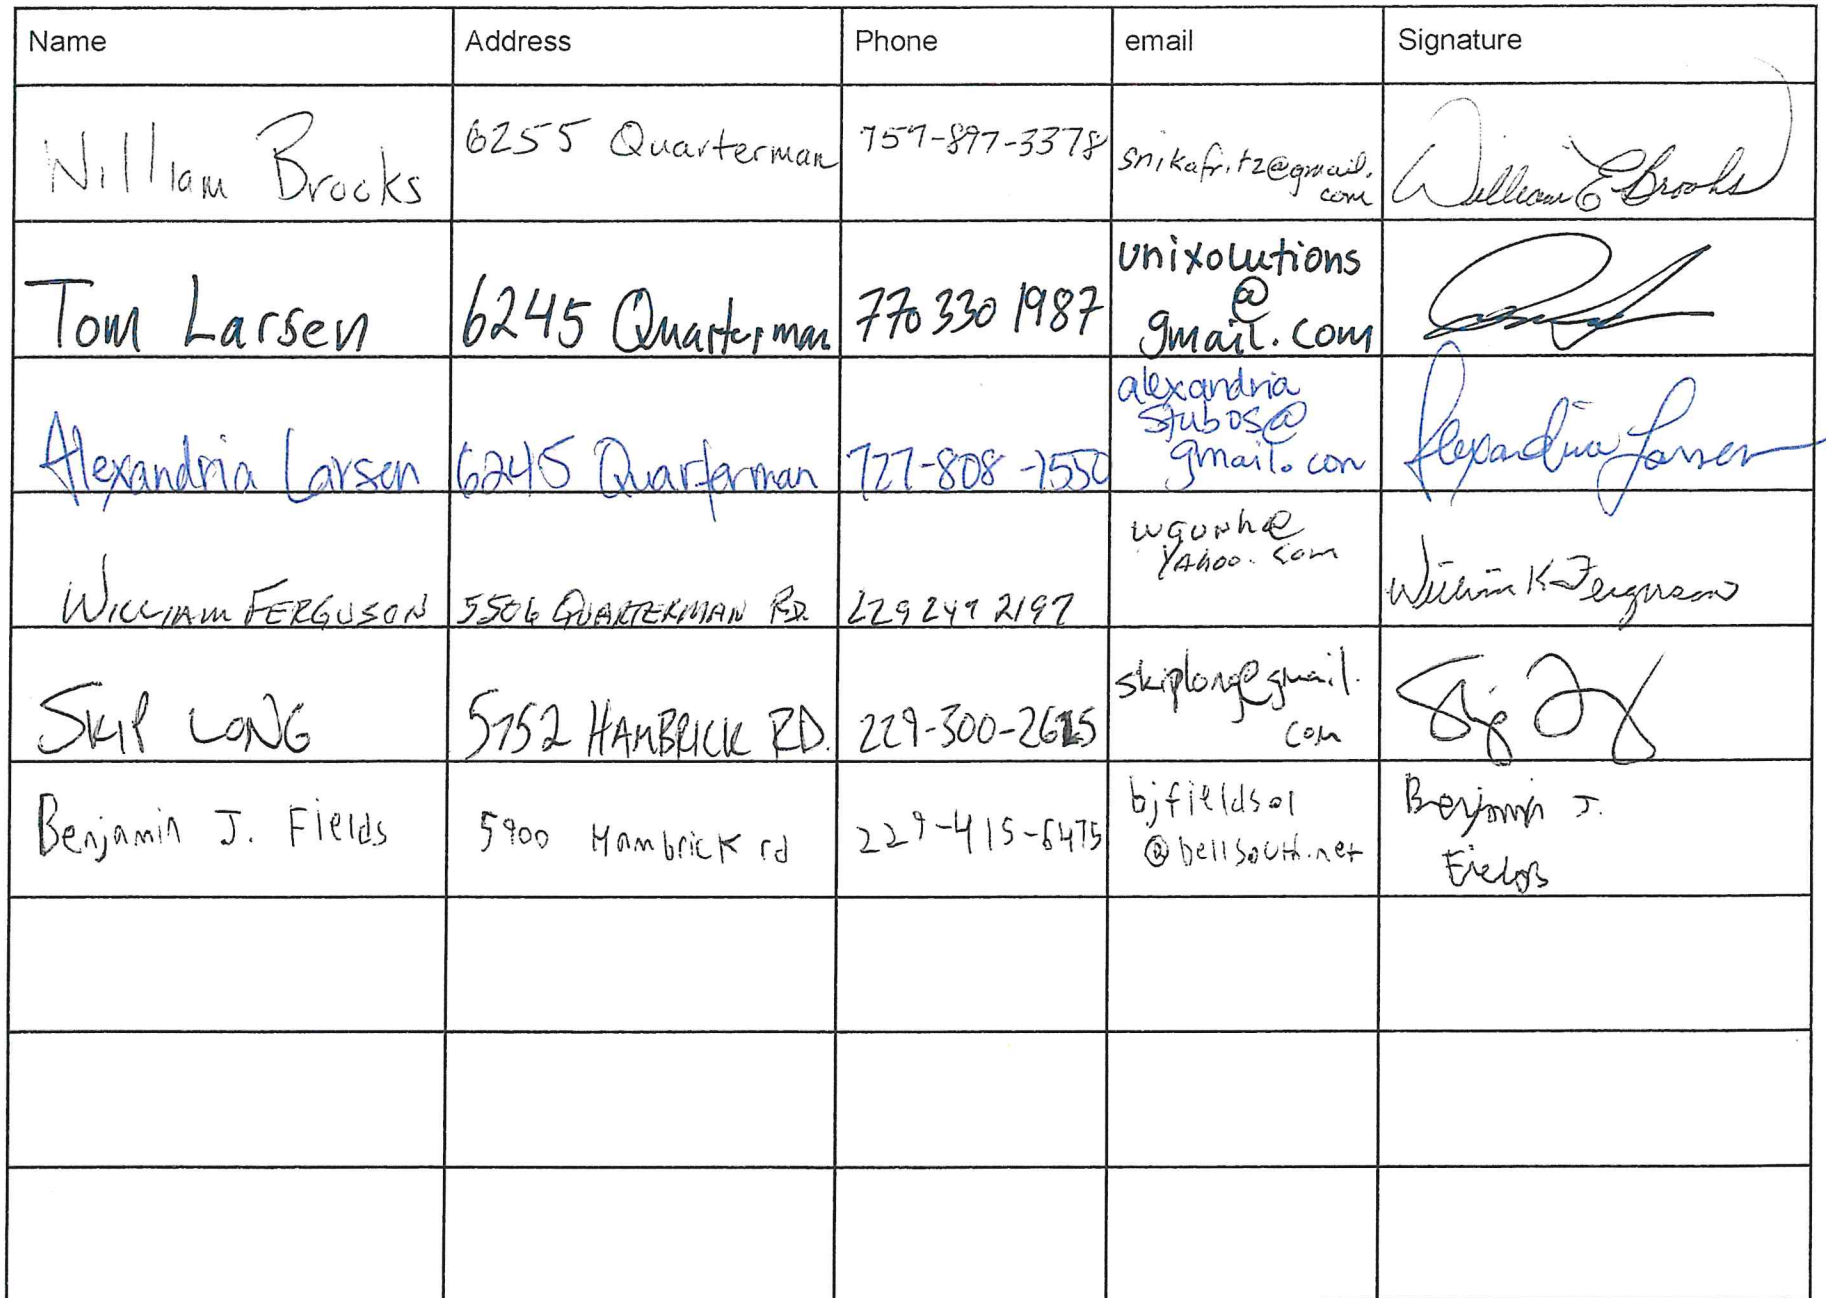 Name Address Phone email Signature
William Brooks 6255 Quarterman 757-897-3378 snikafritz@gmail.
com William E Brooks
Tom Larsen 6245 Quarterman 770 330 1987 unixolutions
@
gmail.com
Alexandria Larsen 6245 Quarterman 727-808-1550 alexandria
stubos@
gmail.com Alexandria Larsen
WILLIAM FERGUSON 5506 QUARTERMAN RD. 229 249 2197 wgunh@
YAHOO.com William K Ferguson
SKIP LONG 5752 HAMBRICK RD. 229-300-2615 skiplong@gmail.
com
Benjamin J. Fields 5900 Hambrick rd 229-415-6475 bjfields01
@bellsouth.net Benjamin J.
Fields